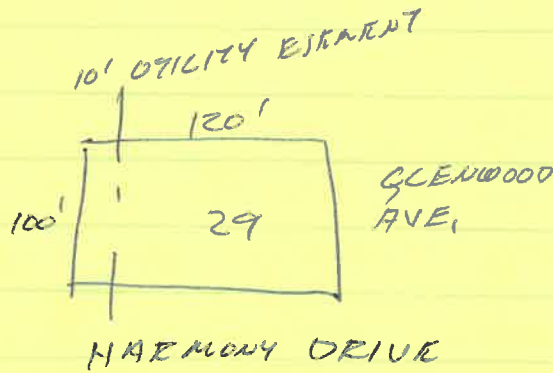 10' UTILITY ESEMENT
120'
100'
29
GLENWOOD
AVE,
HARMONY DRIVE